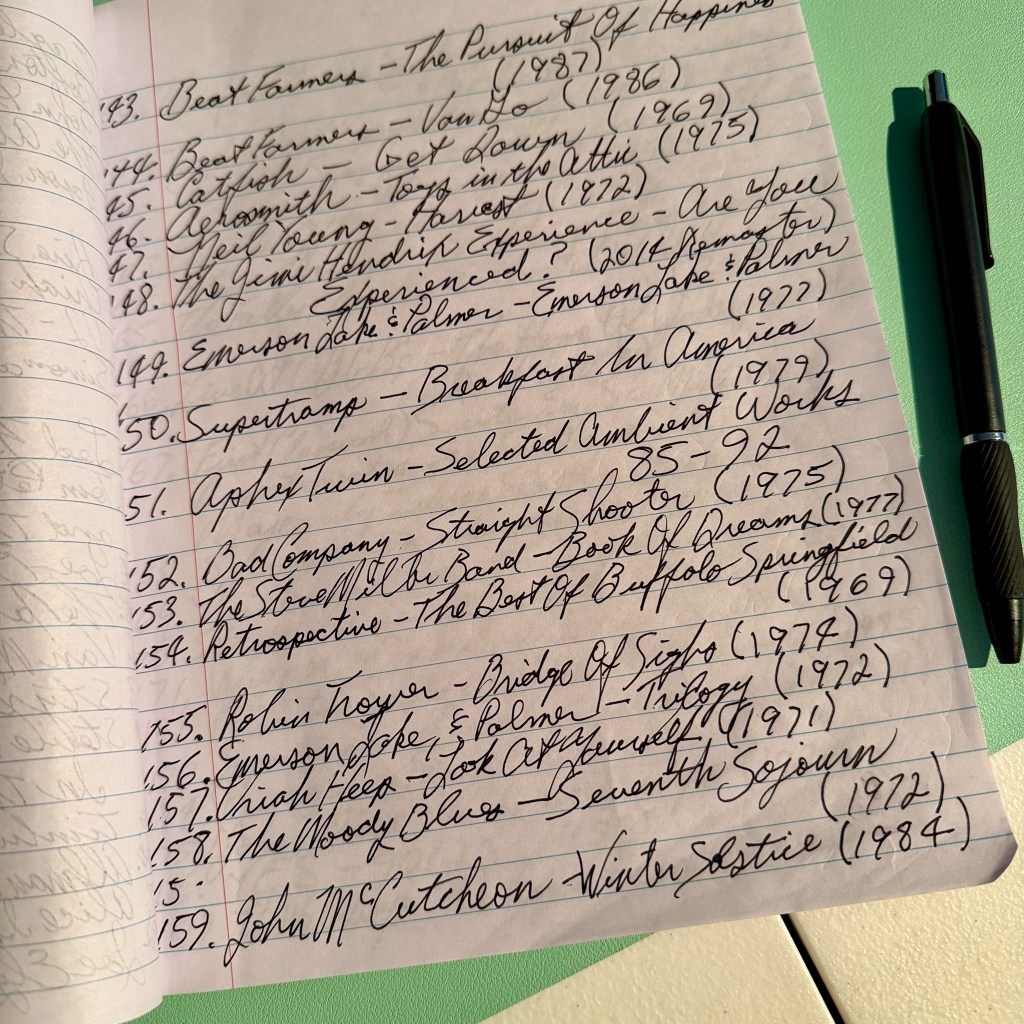 143. Beat Farmers - The Pursuit Of Happiness
(1987)
144. Beat Farmers - Van Go (1986)
45. Catfish - Get Down (1969)
46. Aerosmith - Toys in the Attic (1975)
47. Neil Young - Harvest (1972)
148. The Jimi Hendrix Experience - Are You
Experienced? (2014 Remaster)
149. Emerson Lake & Palmer - Emerson Lake & Palmer
(1977)
50. Supertramp - Breakfast In America
(1979)
51. Aphex Twin - Selected Ambient Works
85-92
152. Bad Company - Straight Shooter (1975)
153. The Steve Miller Band - Book Of Dreams (1977)
154. Retrospective - The Best Of Buffalo Springfield
(1969)
155. Robin Trower - Bridge Of Sighs (1974)
156. Emerson Lake, & Palmer - Trilogy (1972)
157. Uriah Heep - Look At Yourself (1971)
158. The Moody Blues - Seventh Sojourn
(1972)
15
159. John McCutcheon - Winter Solstice (1984)